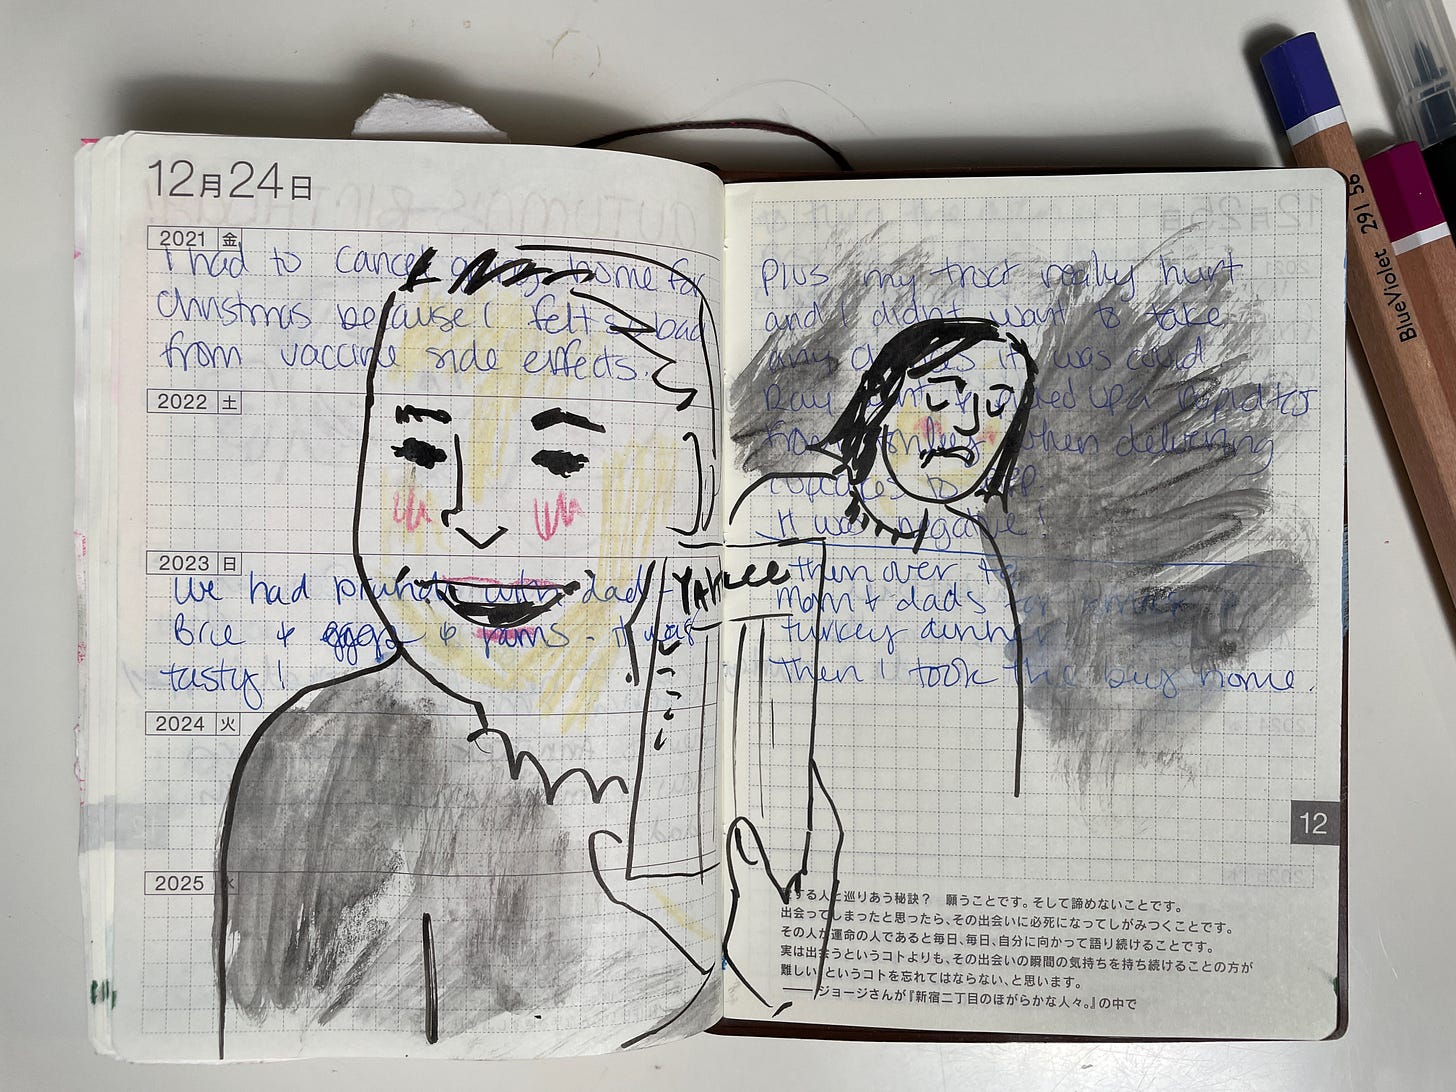 12月24日
2021 金
I had to cancel going home for
Christmas because I felt so bad
from vaccine side effects.
2022 土
2023 日
We had brunch with dad -
Brie & eggs & jams - it was
tasty!
2024 火
2025 水
Plus my really hurt
and I didn't want to take
any chances it was covid
Ray picked up a rapid test
from when delivering
cupcakes to
It was negative!
then over to
mom & dads for
turkey dinner
Then I took the bus home.
する人と巡りあう秘訣？ 願うことです。そして諦めないことです。
出会ってしまったと思ったら、その出会いに必死になってしがみつくことです。
その人が運命の人であると毎日、毎日、自分に向かって語り続けることです。
実は出会うというコトよりも、その出会いの瞬間の気持ちを持ち続けることの方が
難しい、というコトを忘れてはならない、と思います。
——ジョージさんが『新宿二丁目のほがらかな人々。』の中で
12
BlueViolet 291 56